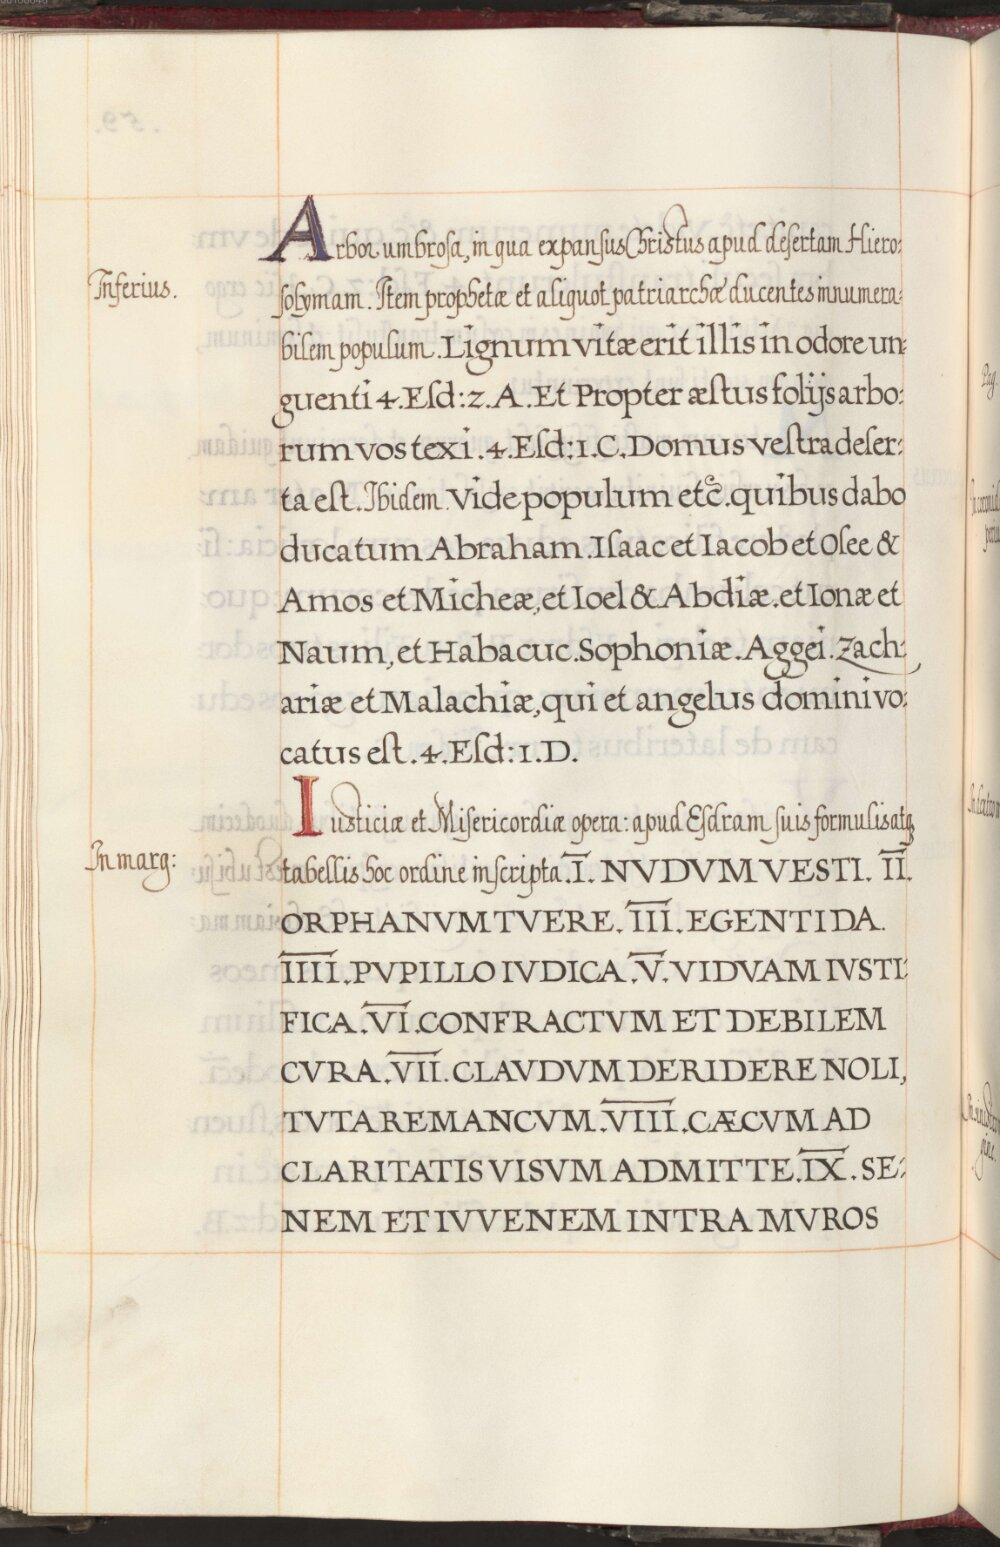 Arbor umbrosa, in qua expansus Christus apud desertam Hiero:
Inferius.
solymam. Item prophetæ et aliquot patriarchæ ducentes innumera:
bilem populum. Lignum vitæ erit illis in odore un:
guenti 4. Esd: 2. A. Et Propter æstus folijs arbo:
rum vos texi. 4. Esd: 1. C. Domus vestra deser:
ta est. Ibidem. Vide populum etc̃. quibus dabo
ducatum Abraham. Isaac et Iacob et Osee &
Amos et Micheæ, et Ioel & Abdiæ. et Ionæ et
Naum, et Habacuc. Sophoniæ. Aggei. Zach:
ariæ et Malachiæ, qui et angelus domini vo:
catus est. 4. Esd: 1. D.
Iusticiæ et Misericordiæ opera: apud Esdram suis formulis atq
In marg:
tabellis hoc ordine inscripta. I. NVDVM VESTI. II.
ORPHANVM TVERE. III. EGENTI DA.
IIII. PVPILLO IVDICA. V. VIDVAM IVSTI:
FICA. VI. CONFRACTVM ET DEBILEM
CVRA. VII. CLAVDVM DERIDERE NOLI,
TVTARE MANCVM. VIII. CÆCVM AD
CLARITATIS VISVM ADMITTE. IX. SE:
NEM ET IVVENEM INTRA MVROS
Pag.